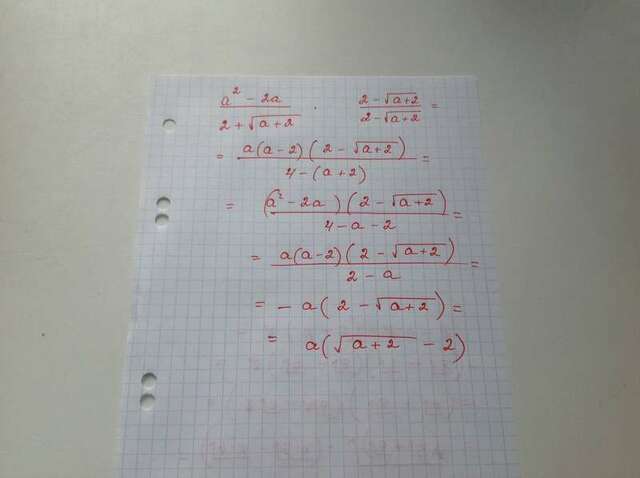 a² - 2a / 2 + √(a + 2) · 2 - √(a + 2) / 2 - √(a + 2) =
= a(a - 2)(2 - √(a + 2)) / 4 - (a + 2) =
= (a² - 2a)(2 - √(a + 2)) / 4 - a - 2 =
= a(a - 2)(2 - √(a + 2)) / 2 - a =
= - a(2 - √(a + 2)) =
= a(√(a + 2) - 2)